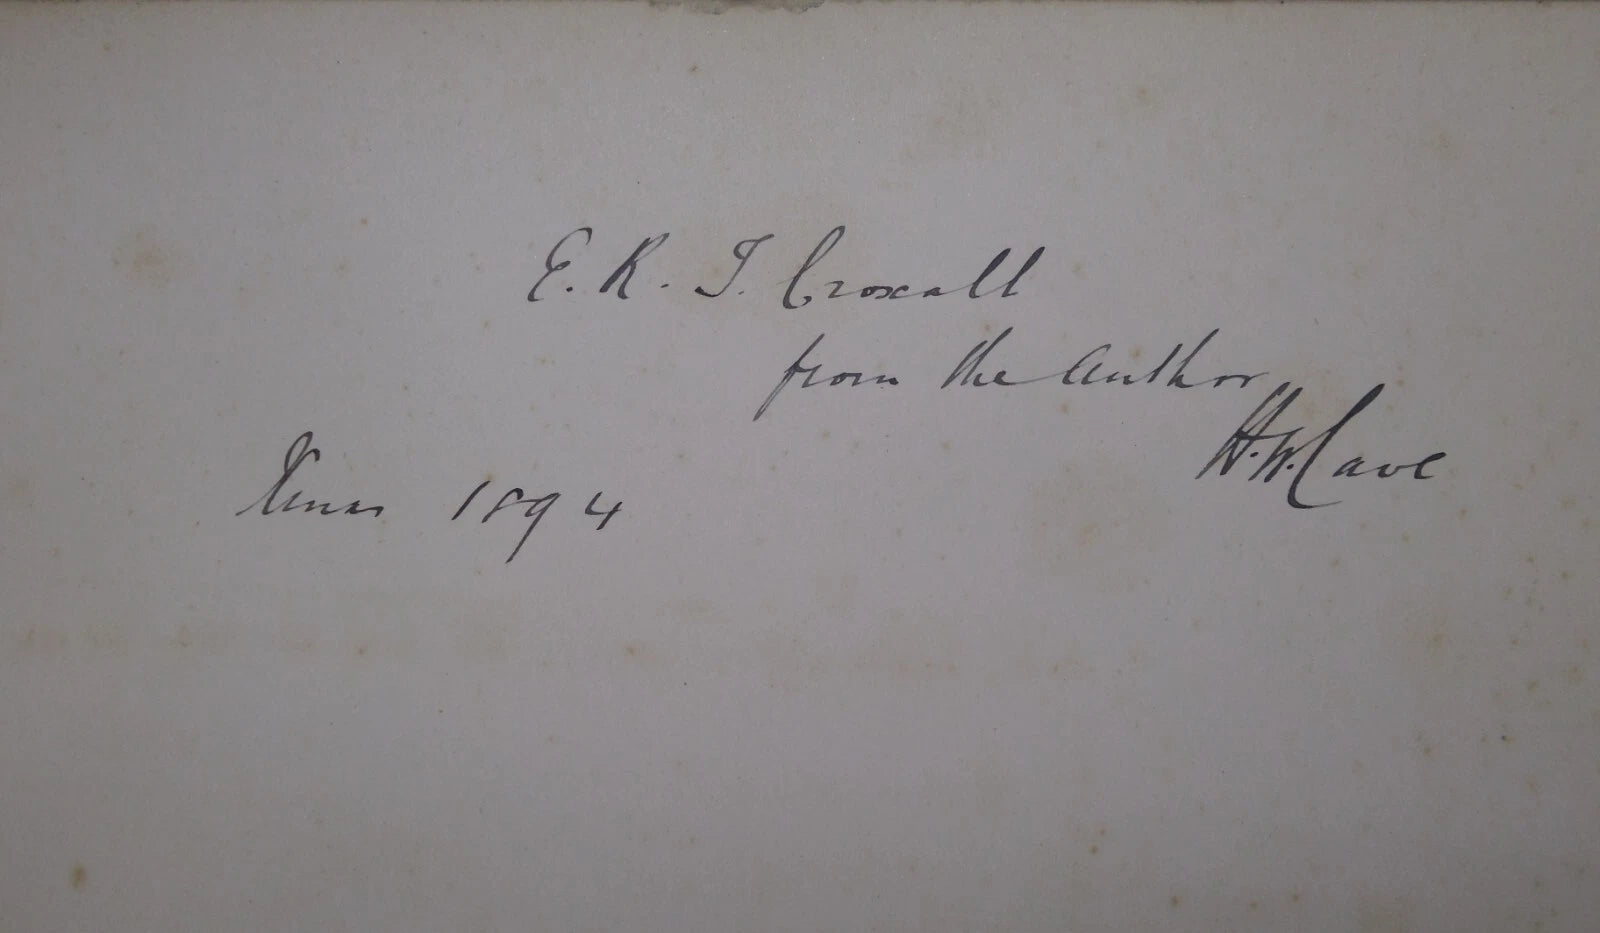 E. R. T. Croxall
from the Author
H. W. Cave
Xmas 1894